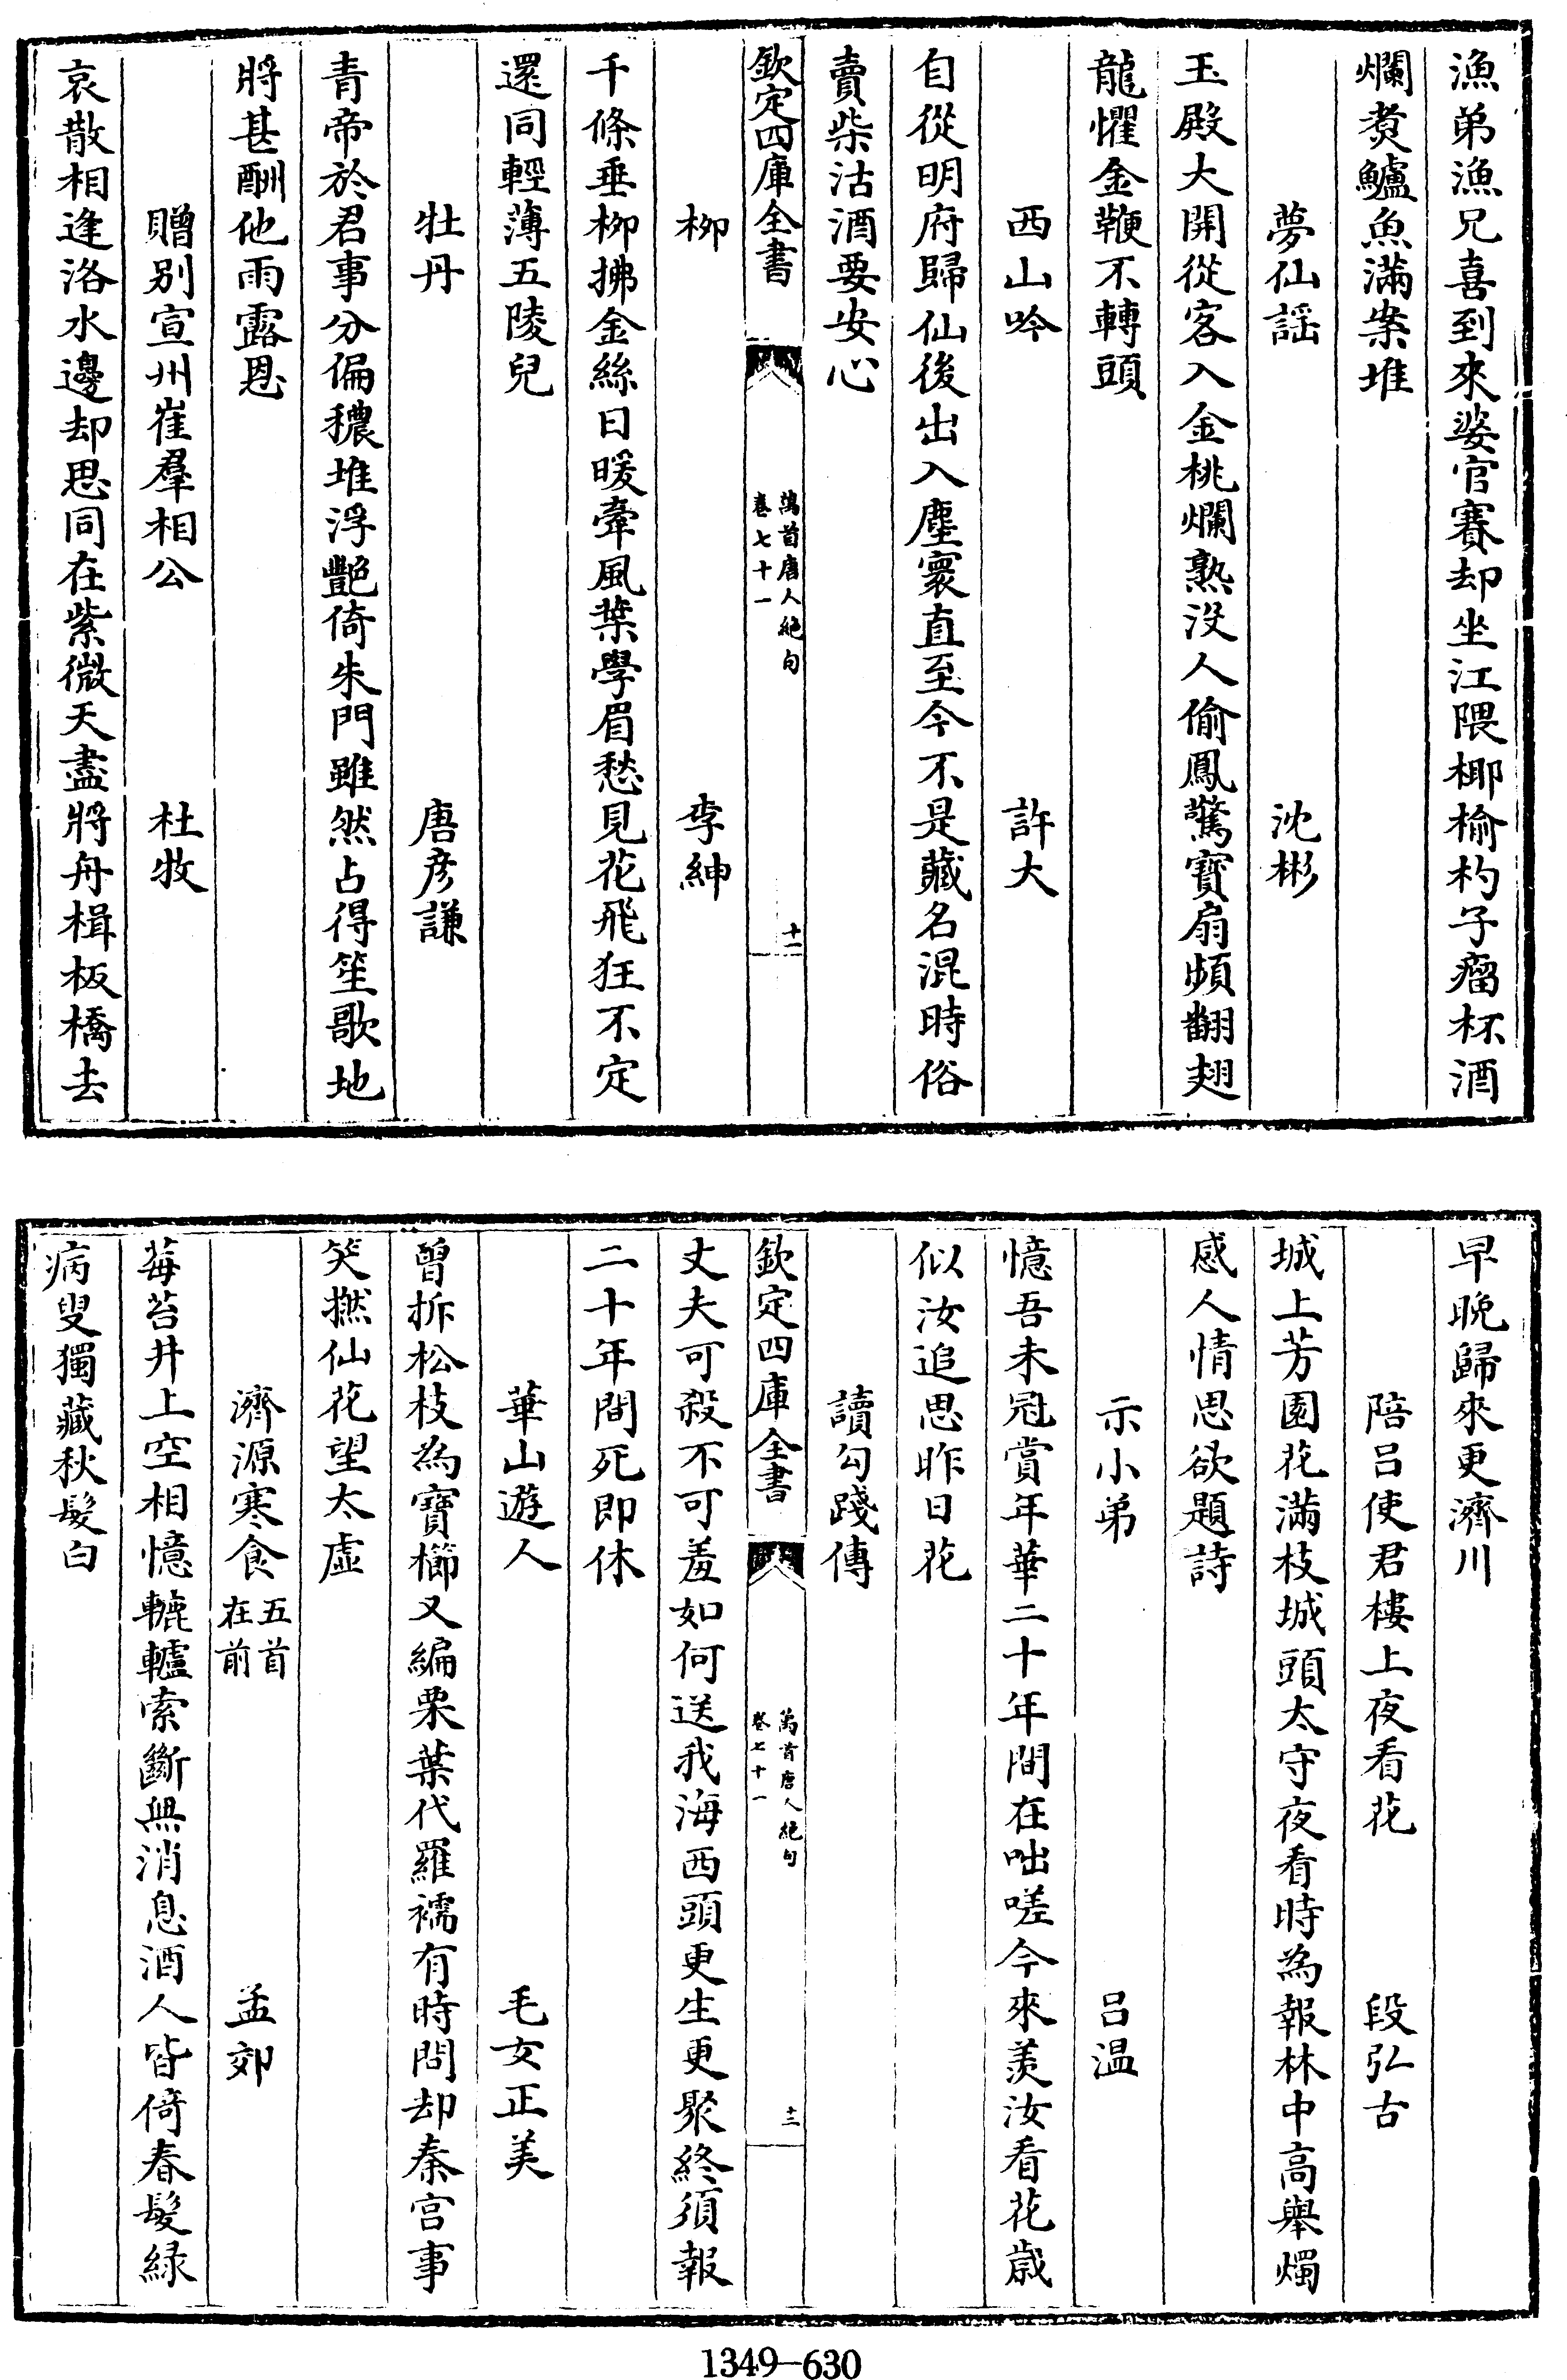 漁弟漁兄喜到來婆官賽却坐江隈椰榆杓子瘤杯酒
爛煑鱸魚滿案堆
夢仙謡 沈彬
玉殿大開從客入金桃爛熟没人偷鳳驚寶扇頻翻翅
龍懼金鞭不轉頭
西山吟 許大
自從明府歸仙後出入塵寰直至今不是藏名混時俗
賣柴沽酒要安心
欽定四庫全書 萬首唐人絶句 卷七十一 十一
柳 李紳
千條垂柳拂金絲日暖牽風葉學眉愁見花飛狂不定
還同輕薄五陵兒
牡丹 唐彦謙
青帝於君事分偏穠堆浮艷倚朱門雖然占得笙歌地
將甚酬他雨露恩
贈别宣州崔羣相公 杜牧
哀散相逢洛水邊却思同在紫微天盡將舟楫板橋去
早晚歸來更濟川
陪吕使君樓上夜看花 段弘古
城上芳園花滿枝城頭太守夜看時為報林中高舉燭
感人情思欲題詩
示小弟 吕温
憶吾未冠賞年華二十年間在咄嗟今來羡汝看花歲
似汝追思昨日花
讀勾踐傳
欽定四庫全書 萬首唐人絶句 卷七十一 十二
丈夫可殺不可羞如何送我海西頭更生更聚終須報
二十年間死即休
華山遊人 毛女正美
曾折松枝為寶櫛又編栗葉代羅襦有時問却秦宫事
笑撚仙花望太虚
濟源寒食五首在前 孟郊
莓苔井上空相憶轆轤索斷無消息酒人皆倚春髮緑
病叟獨藏秋髮白
1349-630